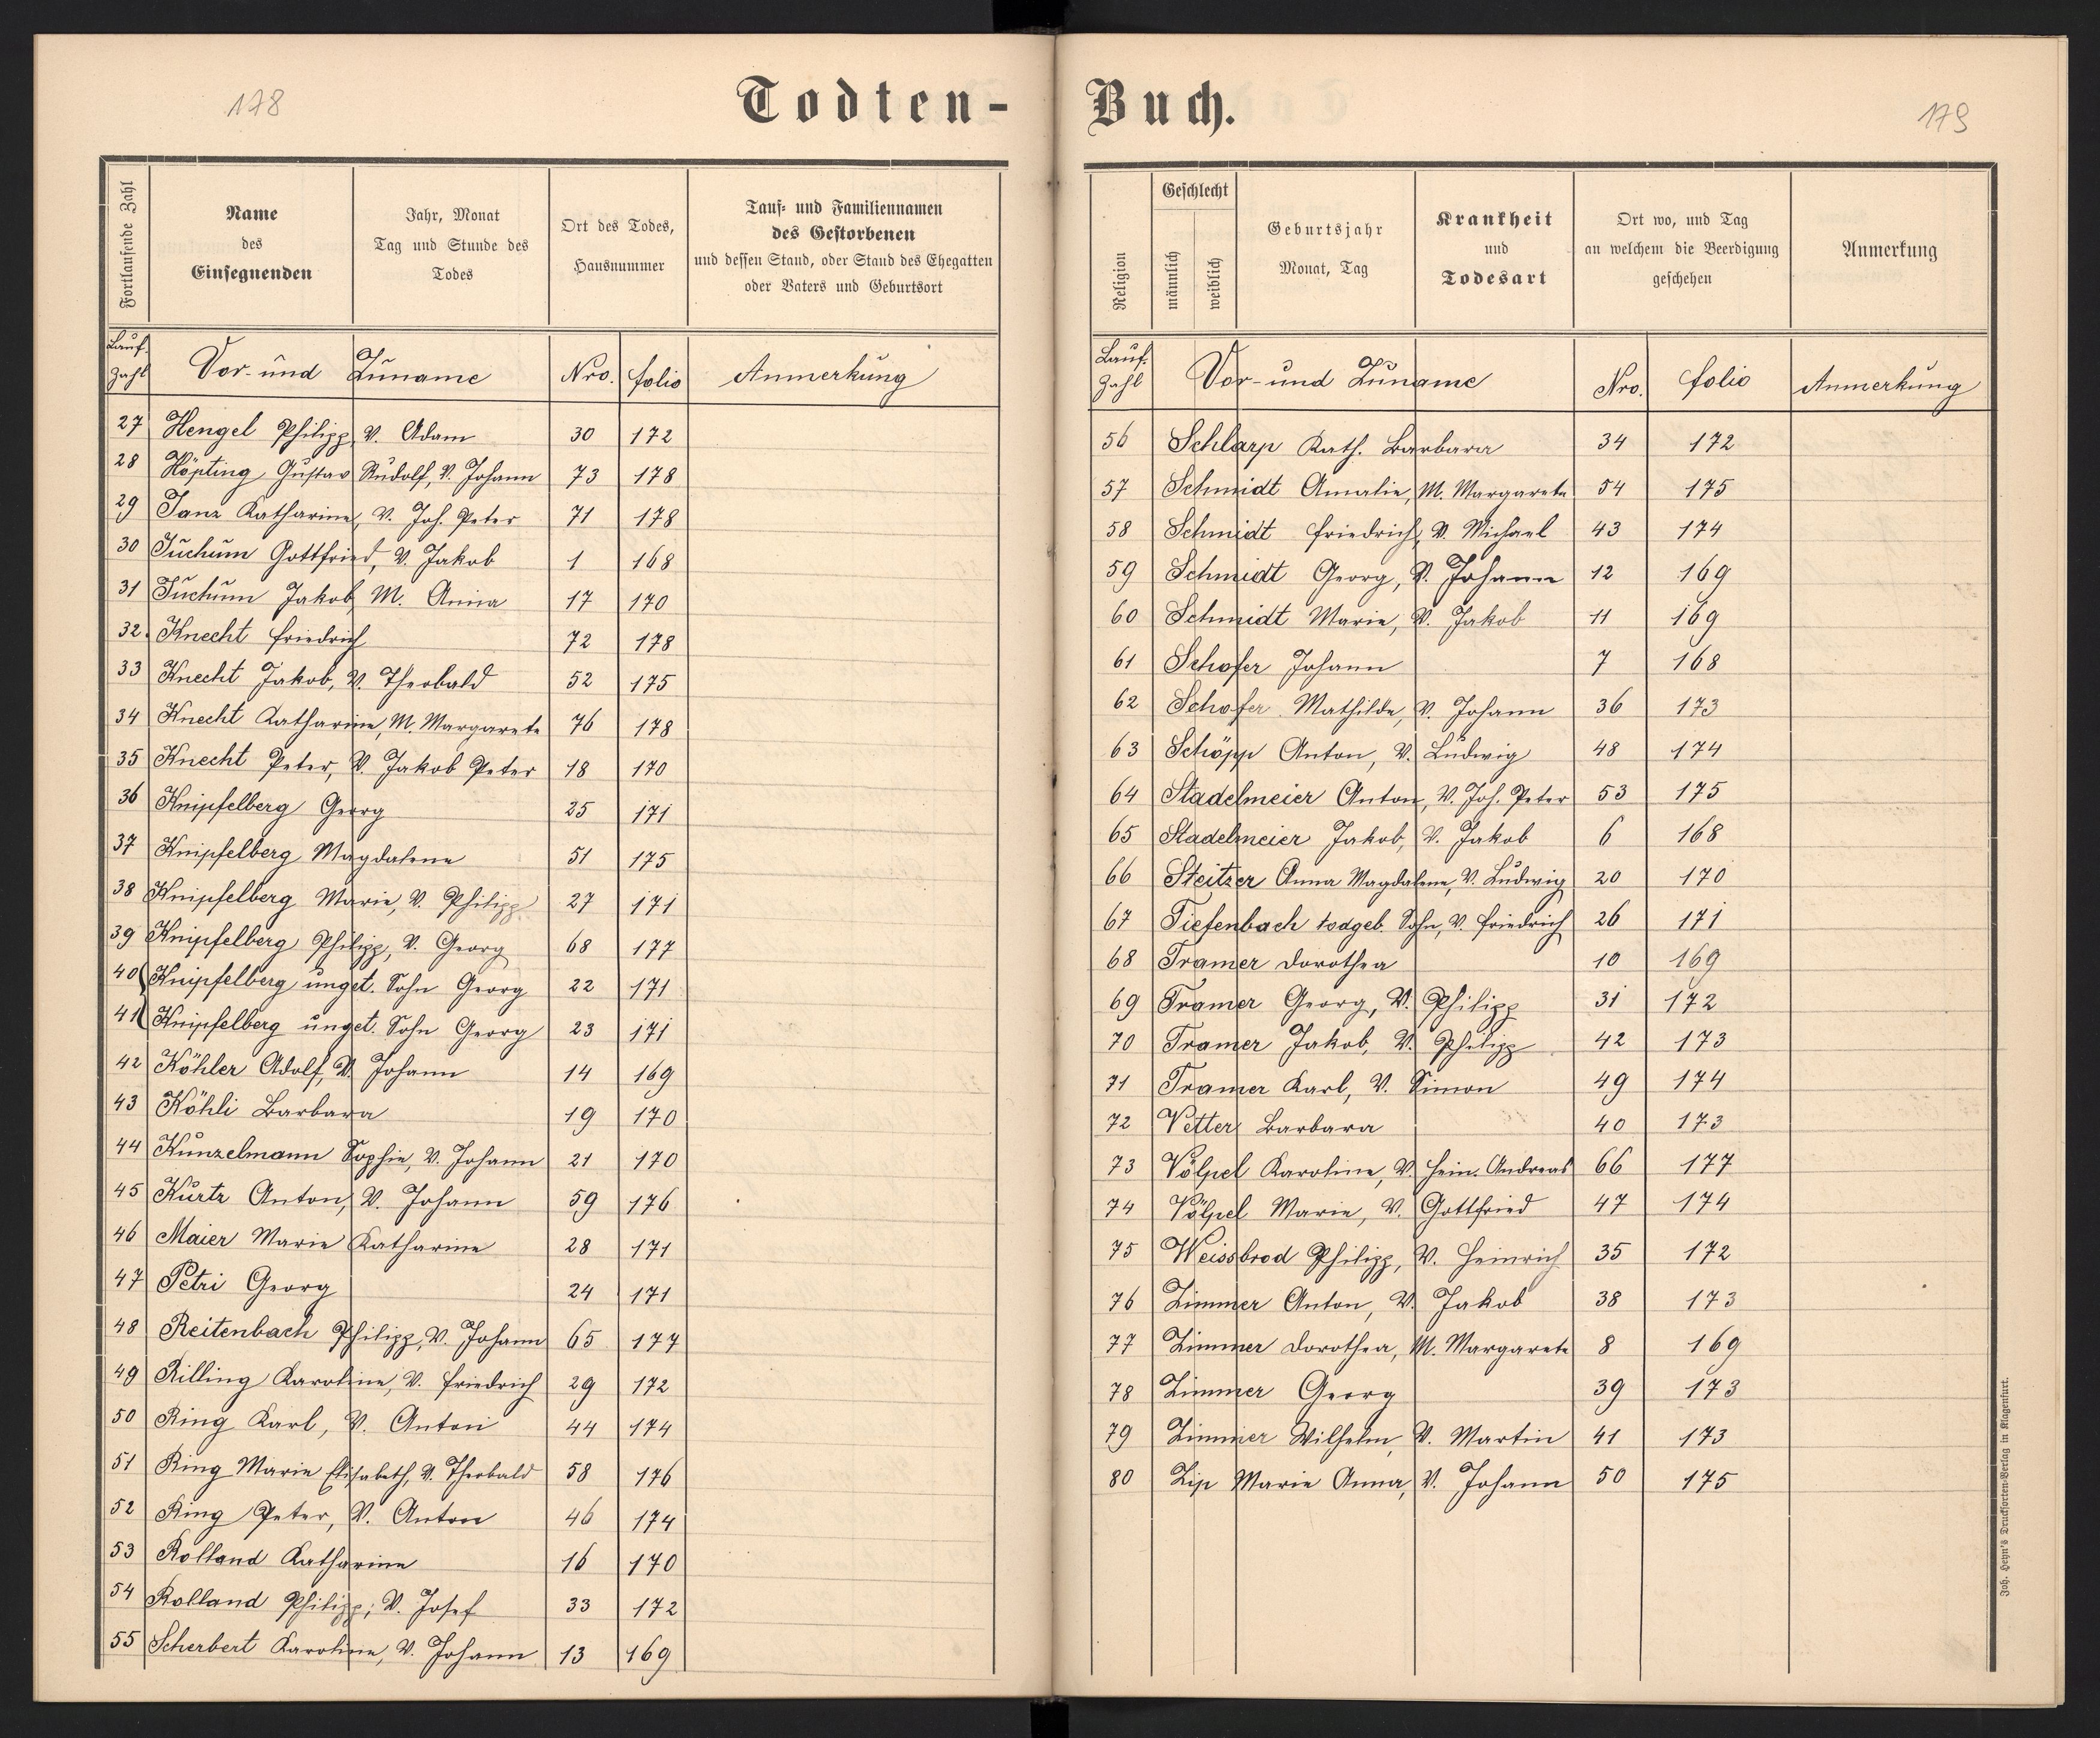 178
Todten-
Fortlaufende Zahl
Name
des
Einsegnenden
Jahr, Monat
Tag und Stunde des
Todes
Ort des Todes,
Hausnummer
Tauf- und Familiennamen
des Gestorbenen
und dessen Stand, oder Stand des Ehegatten
oder Vaters und Geburtsort
Lauf. Zahl Vor- und Zuname Nro. folio Anmerkung
27 Hengel Philipp V. Adam 30 172
28 Höpting Gustav Rudolf, V. Johann 73 178
29 Janz Katharine, V. Joh. Peter 71 178
30 Juchum Gottfried, V. Jakob 1 168
31 Juchum Jakob, M. Anna 17 170
32. Knecht Friedrich 72 178
33 Knecht Jakob, V. Theobald 52 175
34 Knecht Katharine, M. Margarete 76 178
35 Knecht Peter, V. Jakob Peter 18 170
36 Knipfelberg Georg 25 171
37 Knipfelberg Magdalene 51 175
38 Knipfelberg Marie, V. Philipp 27 171
39 Knipfelberg Philipp, V. Georg 68 177
40 Knipfelberg unget. Sohn Georg 22 171
41 Knipfelberg unget. Sohn Georg 23 171
42 Köhler Adolf, V. Johann 14 169
43 Köhli Barbara 19 170
44 Kunzelmann Sophie, V. Johann 21 170
45 Kurtz Anton, V. Johann 59 176
46 Maier Marie Katharine 28 171
47 Petri Georg 24 171
48 Reitenbach Philipp, V. Johann 65 177
49 Rilling Karoline, V. Friedrich 29 172
50 Ring Karl, V. Anton 44 174
51 Ring Marie Elisabeth, V. Theobald 58 176
52 Ring Peter, V. Anton 46 174
53 Rolland Katharine 16 170
54 Rolland Philipp; V. Josef 33 172
55 Scherbert Karoline, V. Johann 13 169
Buch.
179
Religion
Geschlecht
männlich
weiblich
Geburtsjahr
Monat, Tag
Krankheit
und
Todesart
Ort wo, und Tag
an welchem die Beerdigung
geschehen
Anmerkung
Lauf. Zahl Vor- und Zuname Nro. folio Anmerkung
56 Schlarp Kath. Barbara 34 172
57 Schmidt Amalie, M. Margarete 54 175
58 Schmidt Friedrich, V. Michael 43 174
59 Schmidt Georg, V. Johann 12 169
60 Schmidt Marie, V. Jakob 11 169
61 Schofer Johann 7 168
62 Schofer Mathilde, V. Johann 36 173
63 Schöpp Anton, V. Ludwig 48 174
64 Stadelmeier Anton, V. Joh. Peter 53 175
65 Stadelmeier Jakob, V. Jakob 6 168
66 Steitzer Anna Magdalene, V. Ludwig 20 170
67 Tiefenbach todgeb. Sohn, V. Friedrich 26 171
68 Tramer Dorothea 10 169
69 Tramer Georg, V. Philipp 31 172
70 Tramer Jakob, V. Philipp 42 173
71 Tramer Karl, V. Simon 49 174
72 Vetter Barbara 40 173
73 Völpel Karoline, V. Hein. Andreas 66 177
74 Völpel Marie, V. Gottfried 47 174
75 Weissbrod Philipp, V. Heinrich 35 172
76 Zimmer Anton, V. Jakob 38 173
77 Zimmer Dorothea, M. Margarete 8 169
78 Zimmer Georg 39 173
79 Zimmer Wilhelm, V. Martin 41 173
80 Zip Marie Anna, V. Johann 50 175
Joh. Heyn's Drucksorten-Verlag in Klagenfurt.